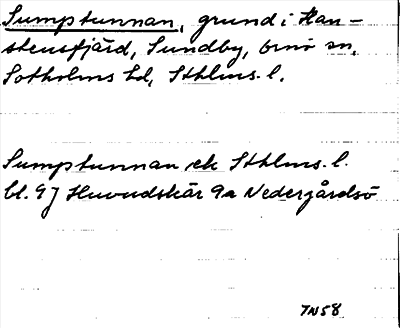 Sumptunnan, grund i Han-
stensfjärd, Sundby, Ornö sn,
Sotholms hd, Sthlms. l.
Sumptunnan ek Sthlms. l.
bl. 97 Huvudskär 9a Nedergårdsö
TN58